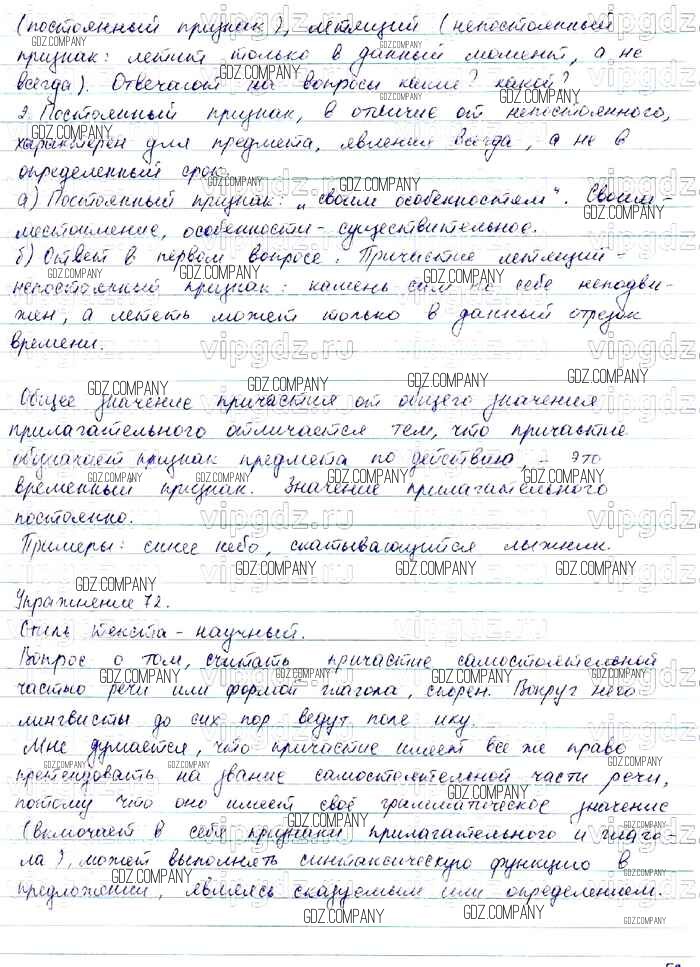 (постоянный признак), летящий (непостоянный
признак: летит только в данный момент, а не
всегда). Отвечают на вопросы какие? какой?
2. Постоянный признак, в отличие от непостоянного,
характерен для предмета, явления всегда, а не в
определенный срок.
а) Постоянный признак: „своим особенностям". Своим -
местоимение, особенности - существительное.
б) Ответ в первом вопросе. Причастие летящий -
непостоянный признак: камень сам по себе неподви-
жен, а лететь может только в данный отрезок
времени.
Общее значение причастия от общего значения
прилагательного отличается тем, что причастие
обозначает признак предмета по действию, - это
временный признак. Значение прилагательного
постоянно.
Примеры: синее небо, скатывающийся лыжник.
Упражнение 72.
Стиль текста - научный.
Вопрос о том, считать причастие самостоятельной
частью речи или формой глагола, спорен. Вокруг него
лингвисты до сих пор ведут полемику.
Мне думается, что причастие имеет все же право
претендовать на звание самостоятельной части речи,
потому что оно имеет своё грамматическое значение
(включает в себя признаки прилагательного и глаго-
ла), может выполнять синтаксическую функцию в
предложении, являясь сказуемым или определением.
GDZ.COMPANY
vipgdz.ru